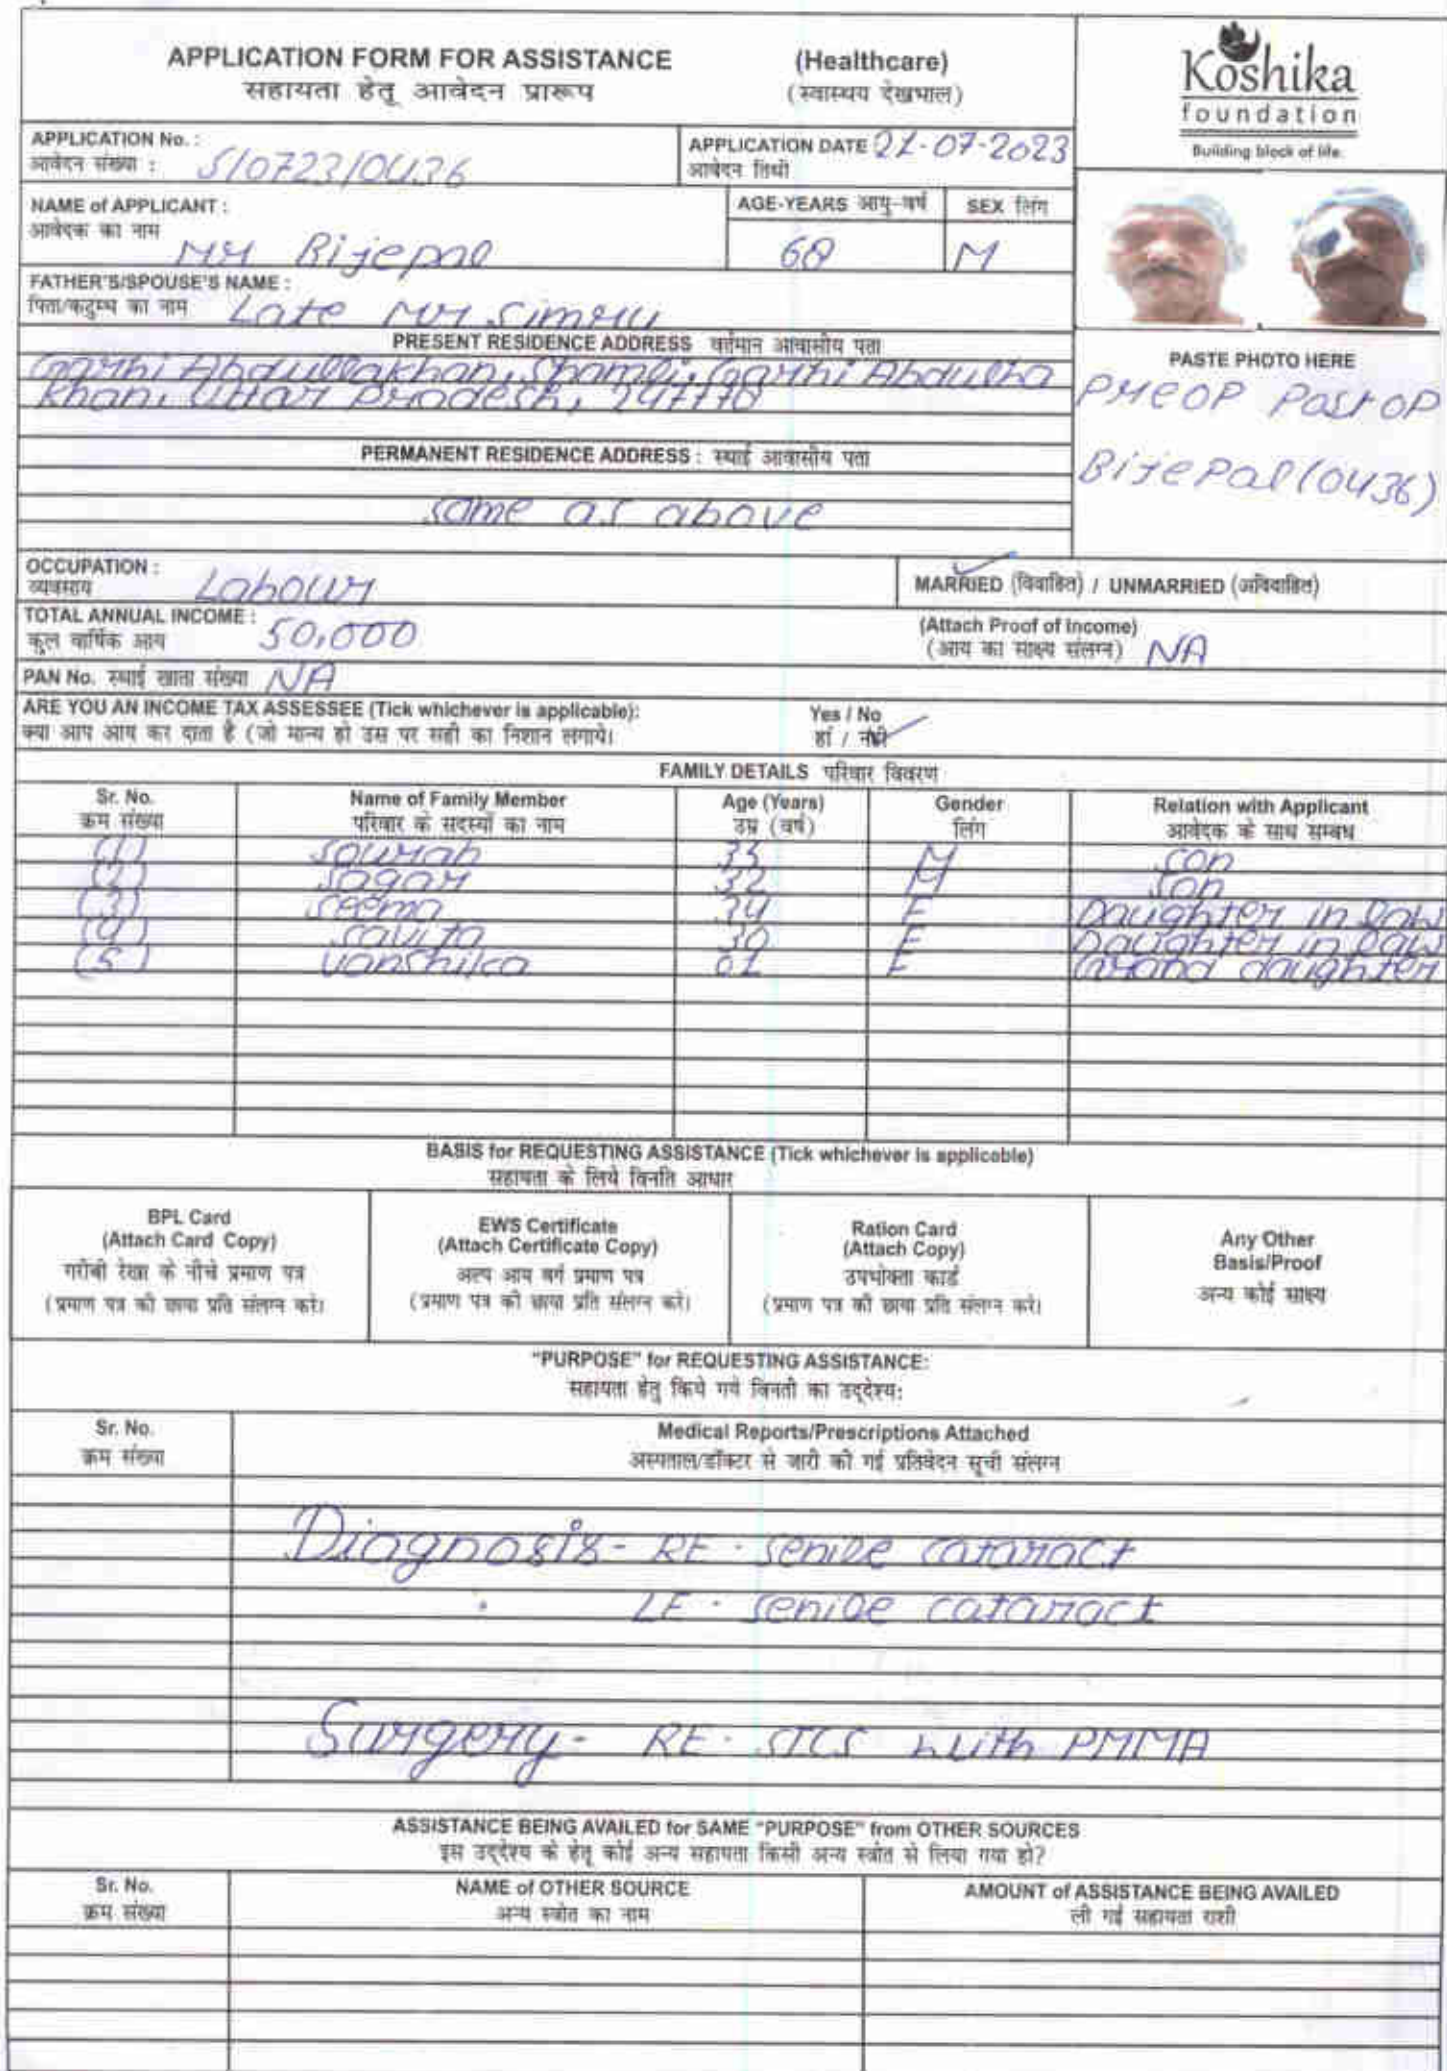 APPLICATION FORM FOR ASSISTANCE (Healthcare)
सहायता हेतू आवेदन प्रारूप (स्वास्थय देखभाल)
Koshika
foundation
Building block of life.
APPLICATION No. :
आवेदन संख्या : S/0723/0436
APPLICATION DATE 21-07-2023
आवेदन तिथी
NAME of APPLICANT :
आवेदक का नाम
Mr Bijepal
AGE-YEARS आयु-वर्ष
68
SEX लिंग
M
FATHER'S/SPOUSE'S NAME :
पिता/कटुम्ब का नाम Late Mr Simru
PRESENT RESIDENCE ADDRESS वर्तमान आवासीय पता
Garhi Abdullakhan, Shamli, Garhi Abdulha
Khan, Uttar Pradesh, 247778
PASTE PHOTO HERE
PreOP Post OP
Bijepal (0436)
PERMANENT RESIDENCE ADDRESS : स्थाई आवासीय पता
same as above
OCCUPATION :
व्यवसाय Labour
MARRIED (विवाहित) / UNMARRIED (अविवाहित)
TOTAL ANNUAL INCOME :
कुल वार्षिक आय 50,000
(Attach Proof of Income)
(आय का साक्ष्य संलग्न) NA
PAN No. स्थाई खाता संख्या NA
ARE YOU AN INCOME TAX ASSESSEE (Tick whichever is applicable): Yes / No
क्या आप आय कर दाता है (जो मान्य हो उस पर सही का निशान लगाये। हां / नहीं
FAMILY DETAILS परिवार विवरण
Sr. No. Name of Family Member Age (Years) Gender Relation with Applicant
क्रम संख्या परिवार के सदस्यों का नाम उम्र (वर्ष) लिंग आवेदक के साथ सम्बध
(1) Sourab 35 M Son
(2) Sagar 32 M Son
(3) Seema 34 F Daughter in law
(4) Savita 30 F Daughter in law
(5) Vanshika 01 F Grand daughter
BASIS for REQUESTING ASSISTANCE (Tick whichever is applicable)
सहायता के लिये विनति आधार
BPL Card
(Attach Card Copy)
गरीबी रेखा के नीचे प्रमाण पत्र
(प्रमाण पत्र की छाया प्रति संलग्न करे।
EWS Certificate
(Attach Certificate Copy)
अल्प आय वर्ग प्रमाण पत्र
(प्रमाण पत्र की छाया प्रति संलग्न करे।
Ration Card
(Attach Copy)
उपभोक्ता कार्ड
(प्रमाण पत्र की छाया प्रति संलग्न करे।
Any Other
Basis/Proof
अन्य कोई साक्ष्य
"PURPOSE" for REQUESTING ASSISTANCE:
सहायता हेतु किये गये विनती का उद्देश्य:
Sr. No. Medical Reports/Prescriptions Attached
क्रम संख्या अस्पताल/डॉक्टर से जारी की गई प्रतिवेदन सूची संलग्न
Diagnosis - RE - senile cataract
LE - senile cataract
Surgery - RE - SICS with PMMA
ASSISTANCE BEING AVAILED for SAME "PURPOSE" from OTHER SOURCES
इस उद्देश्य के हेतू कोई अन्य सहायता किसी अन्य स्त्रोत से लिया गया हो?
Sr. No. NAME of OTHER SOURCE AMOUNT of ASSISTANCE BEING AVAILED
क्रम संख्या अन्य स्त्रोत का नाम ली गई सहायता राशी